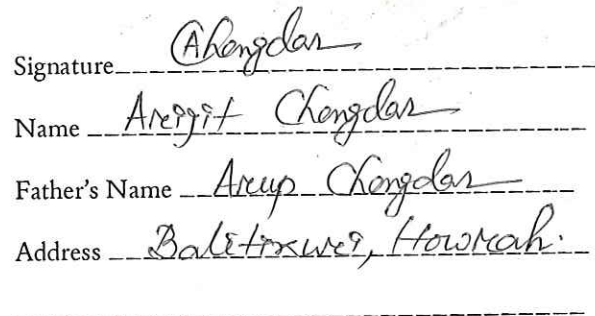 Signature AChongdar
Name Areijit Chongdar
Father's Name Arup Chongdar
Address Balitikuri, Howrah.